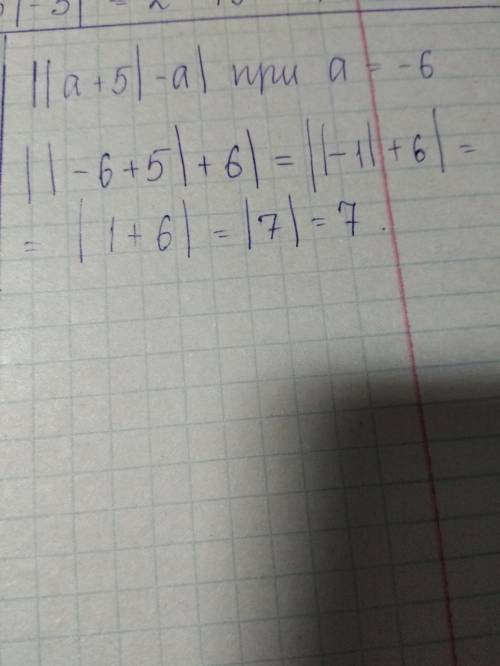 ||a+5|-a| при a = -6
||-6+5|+6| = ||-1|+6| =
= |1+6| = |7| = 7.